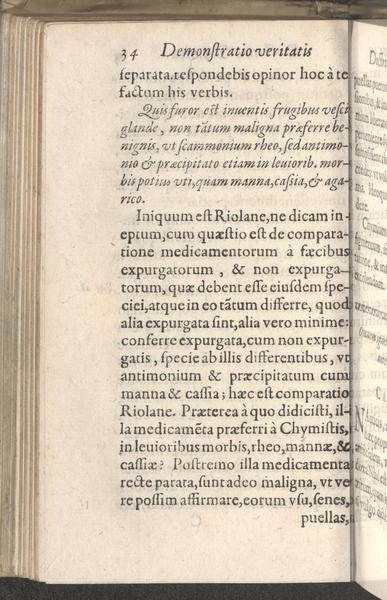 34 Demonſtratio veritatis
ſeparata.reſpondebis opinor hoc à te
factum his verbis.
Quis furor eſt inuentis frugibus veſci
glande, non tãtum maligna præferre be-
nignis, vt ſcammonium rheo, ſed antimo-
nio & præcipitato etiam in leuiorib. mor-
bis potius vti, quam manna, caſsia, & aga-
rico.
Iniquum eſt Riolane, ne dicam in-
eptum, cum quæſtio eſt de compara-
tione medicamentorum à fæcibus
expurgatorum, & non expurga-
torum, quæ debent eſſe eiuſdem ſpe-
ciei, atque in eo tãtum differre, quod
alia expurgata ſint, alia vero minime:
conferre expurgata, cum non expur-
gatis, ſpecie ab illis differentibus, vt
antimonium & præcipitatum cum
manna & caſſia; hæc eſt comparatio
Riolane. Præterea à quo didiciſti, il-
la medicamẽta præferri à Chymiſtis,
in leuioribus morbis, rheo, mannæ, &
caſſiæ? Poſtremo illa medicamenta
recte parata, ſunt adeo maligna, vt ve
re poſſim affirmare, eorum vſu, ſenes,
puellas,